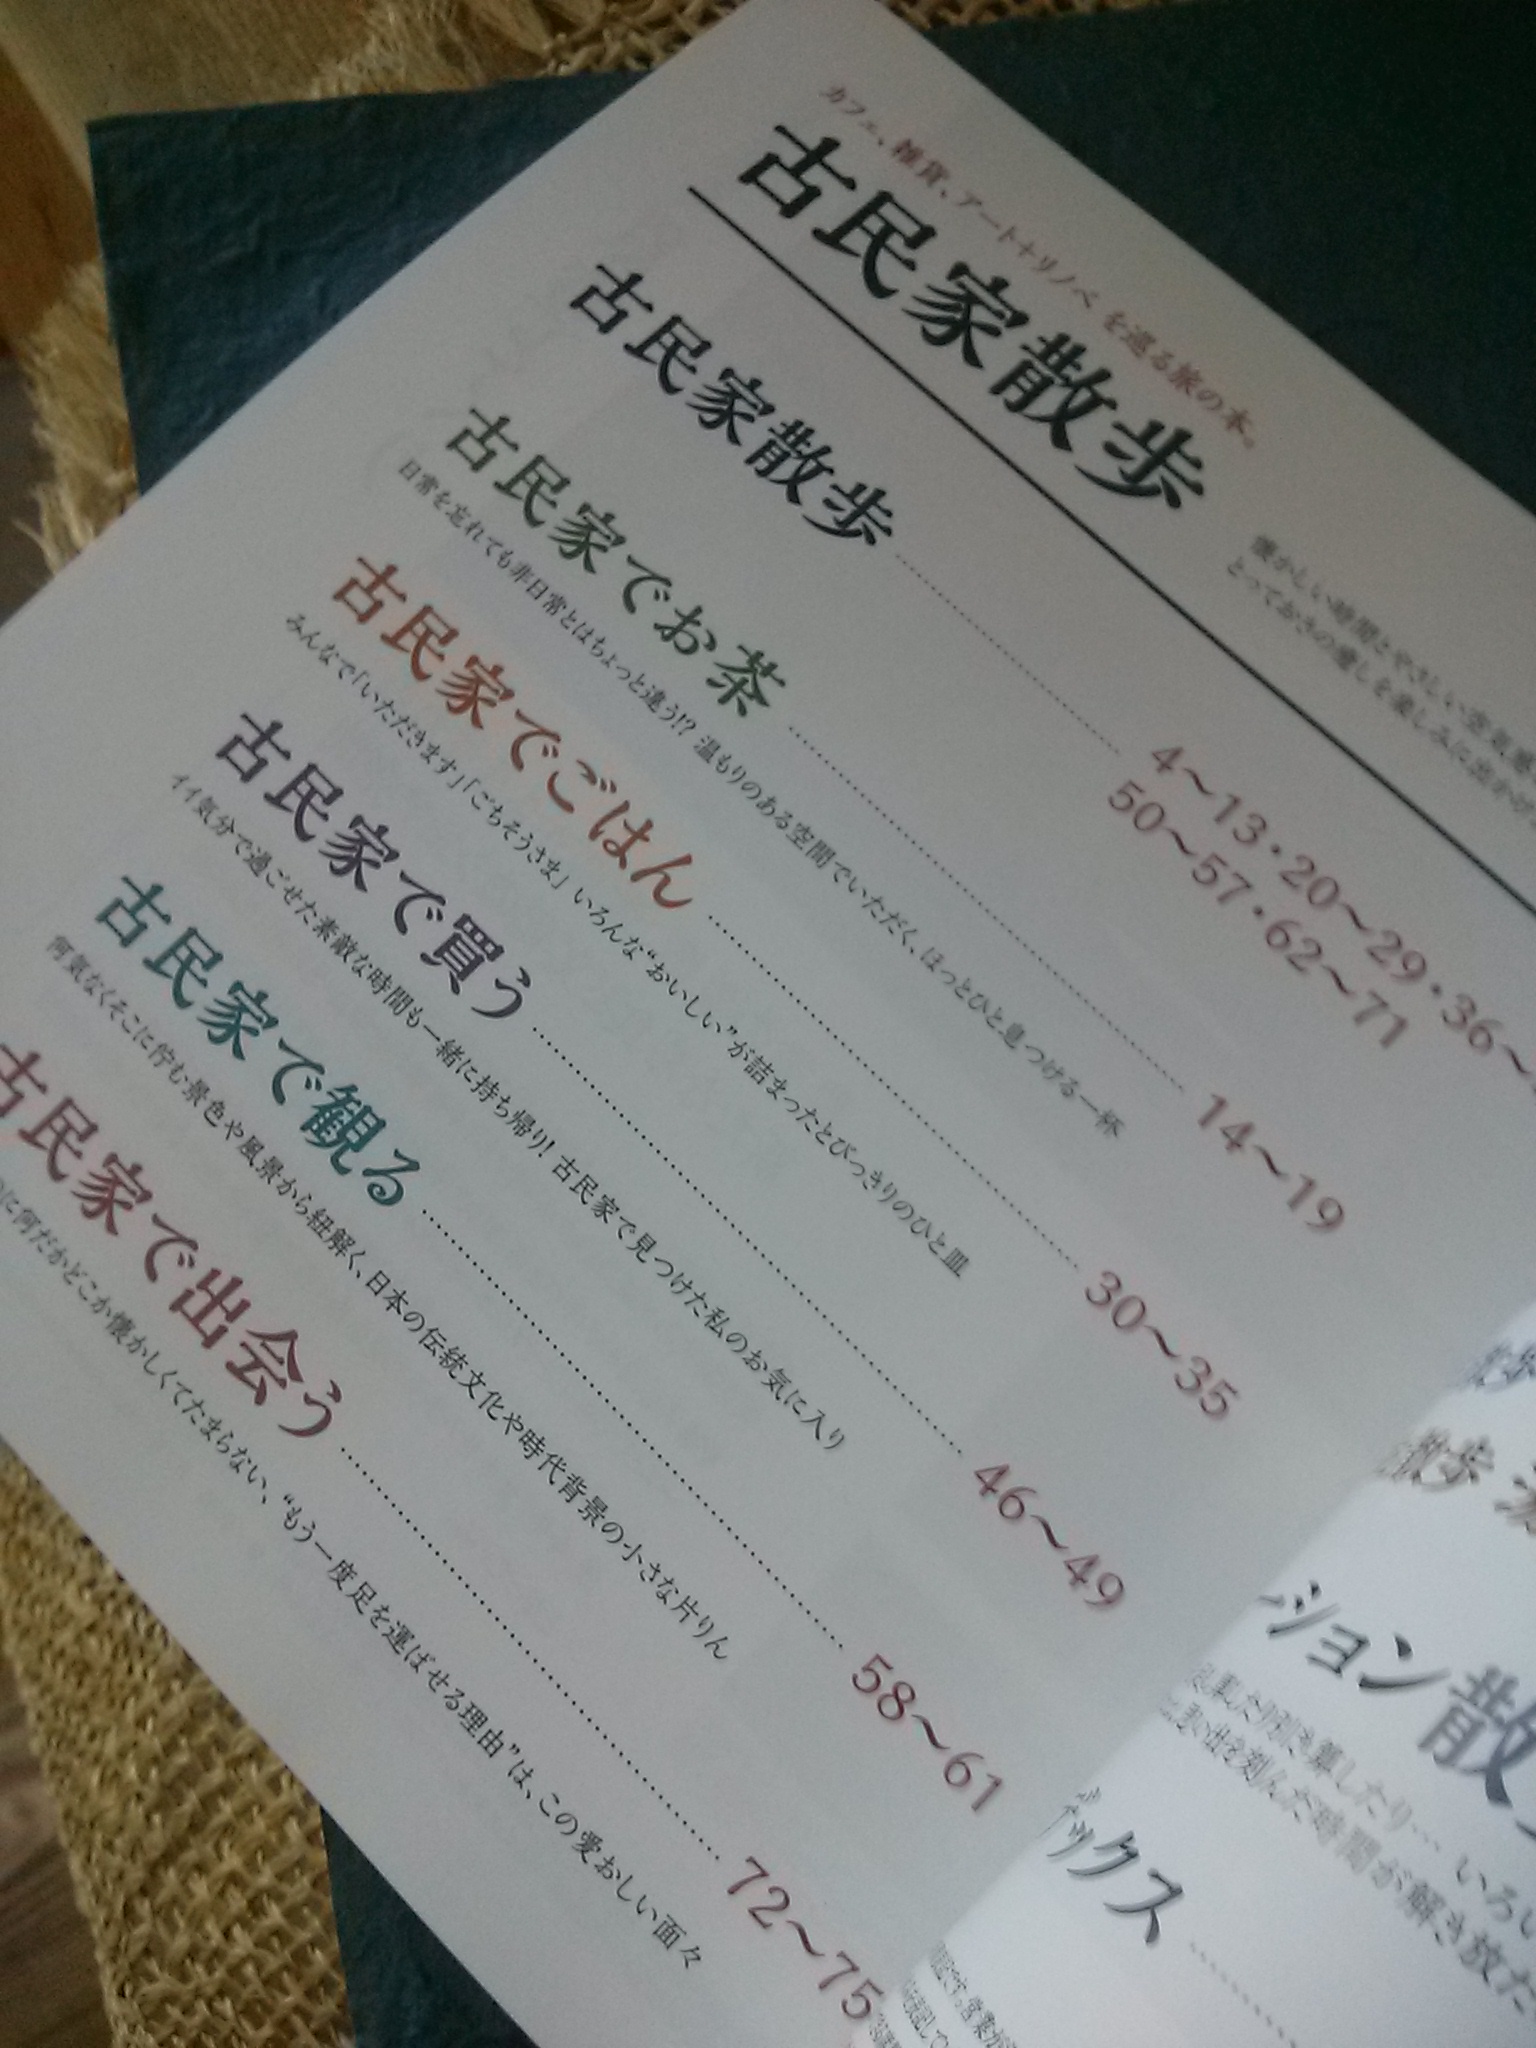 カフェ、雑貨、アート+リノベ を巡る旅の本。
古民家散歩
懐かしい時間とやさしい空気感
とっておきの癒しを楽しみに出かけ
古民家散歩 4〜13・20〜29・36〜
50〜57・62〜71
古民家でお茶 14〜19
日常を忘れても非日常とはちょっと違う!? 温もりのある空間でいただく、ほっとひと息つける一杯
古民家でごはん 30〜35
みんなで「いただきます」「ごちそうさま」 いろんな“おいしい”が詰まったとびっきりのひと皿
古民家で買う 46〜49
イイ気分で過ごせた素敵な時間も一緒に持ち帰り! 古民家で見つけた私のお気に入り
古民家で観る 58〜61
何気なくそこに佇む景色や風景から紐解く、日本の伝統文化や時代背景の小さな片りん
古民家で出会う 72〜75
に何だかどこか懐かしくてたまらない、“もう一度足を運ばせる理由”は、この愛おしい面々
散歩
ション散
したり引き離したり… いろい
思い出を刻んだ時間が解き放た
ックス